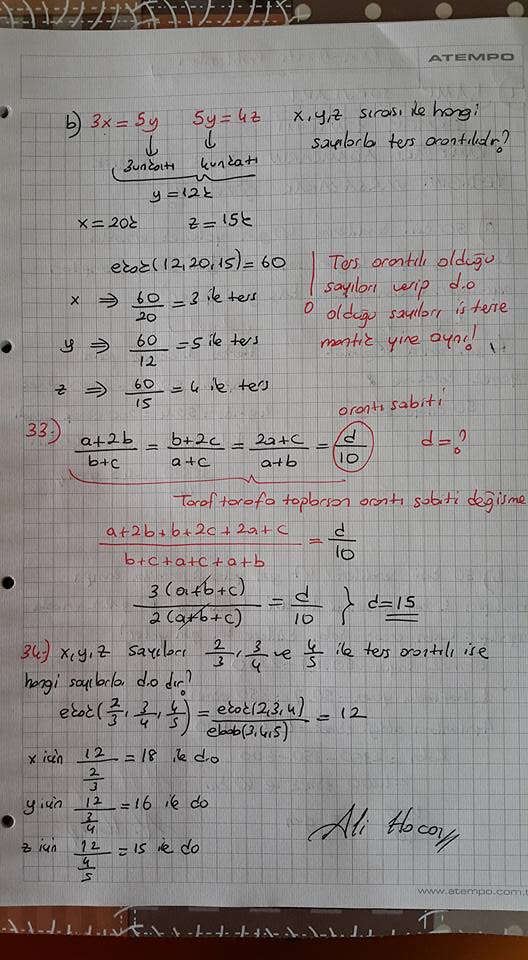 ATEMPO
b) 3x = 5y 5y = 4z x, y, z sırası ile hangi
sayılarla ters orantılıdır?
3ünkatı 4ünkatı
y = 12k
x = 20k z = 15k
ekok(12,20,15) = 60
x ⇒ 60/20 = 3 ile ters
y ⇒ 60/12 = 5 ile ters
z ⇒ 60/15 = 4 ile ters
Ters orantılı olduğu
sayıları verip d.o
olduğu sayıları isterse
mantık yine aynı!
orantı sabiti
33.) a+2b/b+c = b+2c/a+c = 2a+c/a+b = d/10 d = ?
Taraf tarafa toplarsan orantı sabiti değişme
a+2b+b+2c+2a+c/b+c+a+c+a+b = d/10
3(a+b+c)/2(a+b+c) = d/10 } d=15
34.) x, y, z sayıları 2/3, 3/4 ve 4/5 ile ters orantılı ise
hangi sayılarla d.o dır?
ekok(2/3, 3/4, 4/5) = ekok(2,3,4)/ebob(3,4,5) = 12
x için 12/(2/3) = 18 ile d.o
y için 12/(3/4) = 16 ile do
z için 12/(4/5) = 15 ile do
Ali Hoca
www.atempo.com.t